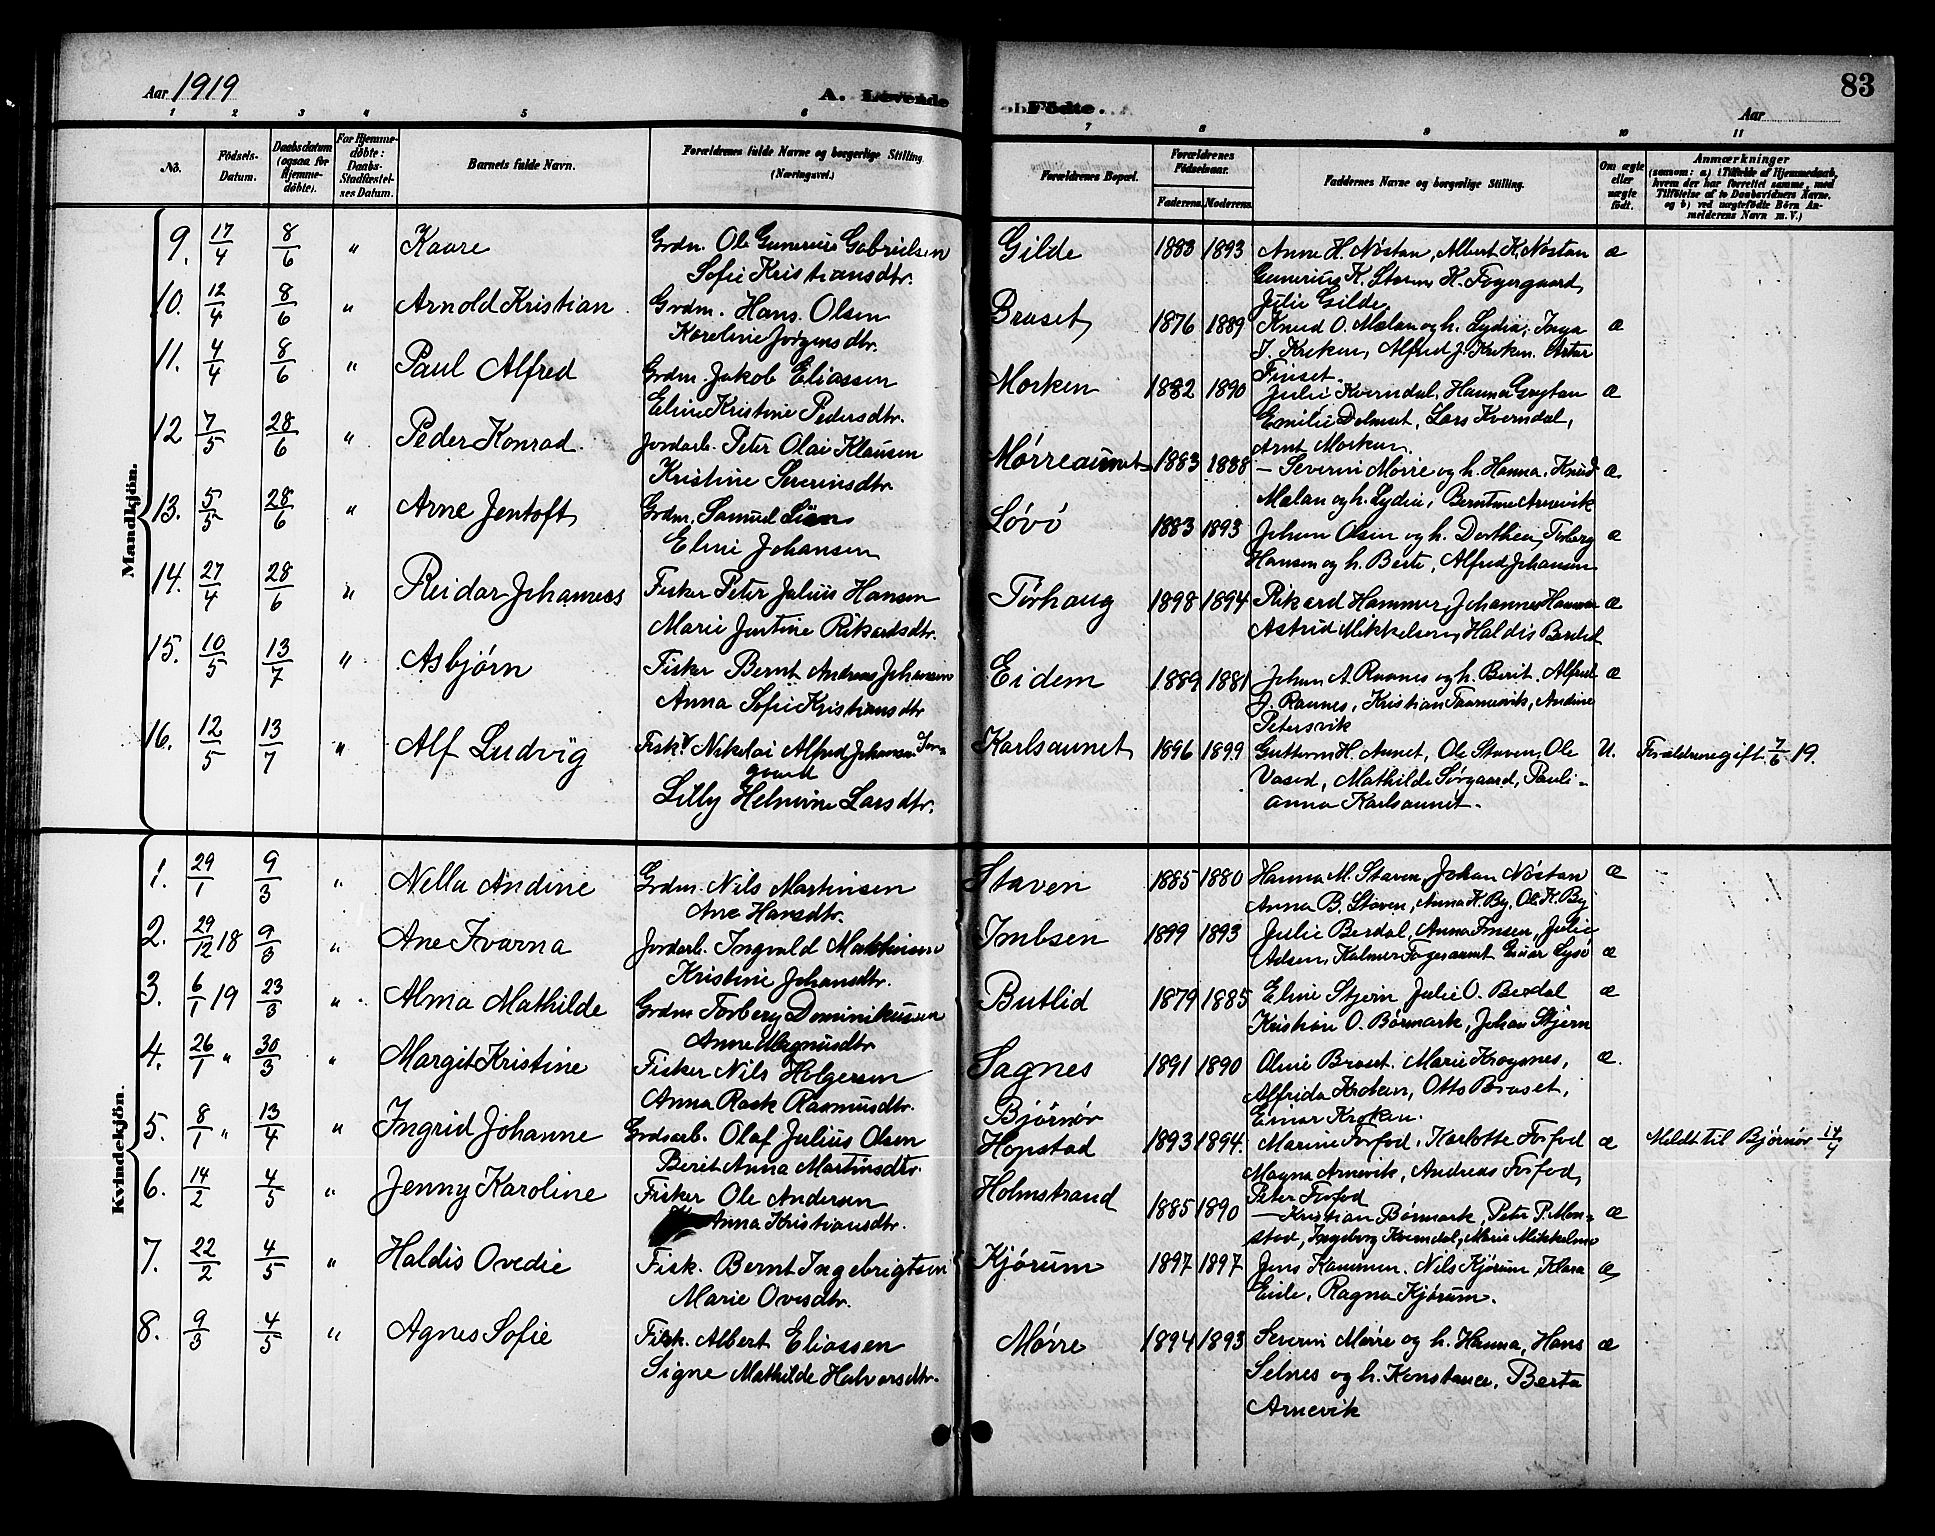 Aar 1919
A. Levende
Fødte.
83
Aar
1 2 3 4 5 6 7 8 9 10 11
No.
Fødsels-Datum.
Daabsdatum (ogsaa for Hjemmedøbte).
For Hjemmedøbte: Daabs-Stadfæstelses Datum.
Barnets fulde Navn.
Forældrenes fulde Navne og borgerlige Stilling. (Næringsvei.)
Forældrenes Bopæl.
Forældrenes Fødselsaar.
Faderens. Moderens.
Faddernes Navne og borgerlige Stilling.
Om ægte eller uægte født.
Anmærkninger
(saasom: a) i Tilfælde af Hjemmedaab, hvem der har forrettet samme, med Tilføielse af to Daabsvidners Navne, og b) ved uægtefødte Børn Anmelderens Navn m. V.)
Mandkjön.
9. 17/4 8/6 " Kaare Grdm. Ole Gunerius Gabrielsen Gilde 1883 1893 Anne H. Nøstan, Albert K. Nøstan æ
Sofie Kristiansdtr. Gunerius K. Staven H. Fagergaard,
Julie Gilde
10. 12/4 8/6 " Arnold Kristian Grdm. Hans Olsen Braset 1876 1889 Knud O. Mælan og h. Lydia, Inga æ
Karoline Jørgensdtr. J. Kroken, Alfred J. Kroken. Artur
Finset.
11. 4/4 8/6 " Paul Alfred Grdm. Jakob Eliassen Morken 1882 1890 Julie Kverndal, Hanna Grytan æ
Eline Kristine Pedersdtr. Emilie Dolmset, Lars Kverndal,
Arnt Morken.
12 7/5 28/6 " Peder Konrad Jordarb. Peter Olai Klausen Mørreaunet 1883 1888 Severin Mørre og h. Hanna, Knud æ
Kristine Severinsdtr. Mælan og h. Lydia, Berntine Arnevik
13. 5/5 28/6 " Arne Jentoft Grdm. Samuel Løvø 1883 1893 Johan Olsen og h. Dorthea, Torberg æ
Eline Johansen Hansen og h. Berte, Alfred Johansen
14. 27/4 28/6 " Reidar Johannes Fisker Peter Julius Hansen Tørhaug 1898 1894 Rikard Hammer, Johannes Hammer æ
Marie Justine Rikardsdtr. Astrid Mikkelsen, Haldis Berdal
15. 10/5 13/7 " Asbjørn Fisker Bernt Andreas Johansen Eidem 1889 1881 Johan A. Raanes og h. Berit, Alfred æ
Anna Sofie Kristiansdtr J. Raanes, Kristian Taarnevik, Andine
Petersvik
16. 12/5 13/7 " Alf Ludvig Fisk. Nikolai Alfred Johansen Karlsaunet 1896 1899 Guttorm H. Aunet, Ole Staven, Ole U. Forældrene gift 7/6 19.
gaard Vased, Mathilde Sørgaard, Pauli-
Lilly Helmine Larsdtr. anna Karlsaunet.
Kvindekjön.
1. 29/1 9/3 " Nella Andine Grdm. Nils Martinsen Staven 1885 1880 Hanna M. Staven, Johan Nøstan æ
Ane Hansdtr. Anna B. Staven, Anna K. By, Ole K. By
2. 29/12 18 9/3 " Ane Ivarna Jordarb. Ingvald Mathinsen Imbsen 1899 1893 Julie Berdal, Anna Imsen, Julie
Kristine Johansdtr. Adsen, Kalmer Fageraunet Einar Lysø æ
3. 6/1 19 23/3 " Alma Mathilde Grdm Torberg Dominikussen Butlid 1879 1885 Eline Stjern Julie O. Berdal æ
Anne Magnusdtr Kristian O. Børmark, Johan Stjern
4. 26/1 " 30/3 " Margit Kristine Fisker Nils Holgersen Sagnes 1891 1890 Oline Braset. Marie Krogsnes, æ.
Anna Rask Rasmusdtr. Bjørnør Alfrida Krokan, Otto Braset,
Einar Krokan.
5. 8/1 " 13/4 " Ingrid Johanne Grdsarb. Olaf Julius Olsen Hopstad 1893 1894. Marine Forfod, Karlotte Forfod æ Meldt til Bjørnør 14/4
Berit Anna Martinsdtr. Magna Arnevik, Andreas Forfod,
Peter Forfod
6. 14/2 4/5 " Jenny Karoline Fisker Ole Andersen Holmstrand 1885 1890 Kristian Børmark, Peter P. Mon- æ
Anna Kristiansdtr. stad, Ingeborg Kverndal, Marie Mikkelsen
7. 22/2 4/5 " Haldis Ovedie Fisk. Bernt Ingebrigtsen Kjørum 1897 1897 Jens Hammer. Nils Kjørum, Klara æ
Marie Ovesdtr. Eide, Ragna Kjørum.
8. 9/3 4/5 " Agnes Sofie Fisk. Albert Eliassen Mørre 1894 1893 Severin Mørre og h. Hanna, Hans æ
Signe Mathilde Halvorsdtr. Selnes og h. Konstance, Berta
Arnevik